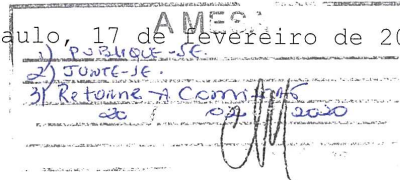 À MESA
aulo, 17 de fevereiro de 20
1) PUBLIQUE-SE.
2) JUNTE-SE.
3) Retorne À Comissão
20 / 02 2020